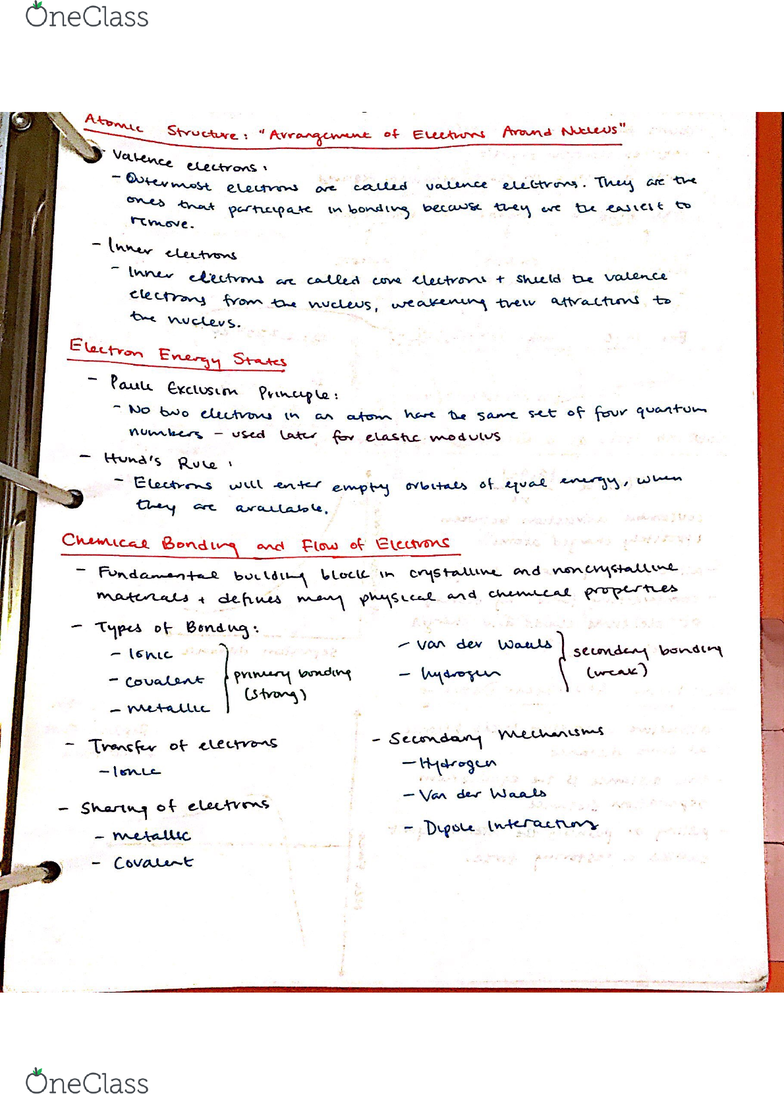 OneClass
Atomic Structure: "Arrangement of Electrons Around Nucleus"
- Valence electrons:
- Outermost electrons are called valence electrons. They are the
ones that participate in bonding because they are the easiest to
remove.
- Inner electrons
- Inner electrons are called core electrons + shield the valence
electrons from the nucleus, weakening their attractions to
the nucleus.
Electron Energy States
- Pauli Exclusion Principle:
- No two electrons in an atom have the same set of four quantum
numbers - used later for elastic modulus
- Hund's Rule:
- Electrons will enter empty orbitals of equal energy, when
they are available.
Chemical Bonding and Flow of Electrons
- Fundamental building block in crystalline and noncrystalline
materials + defines many physical and chemical properties
- Types of Bonding:
- Ionic
- covalent
- metallic
primary bonding
(strong)
- van der Waals
- hydrogen
secondary bonding
(weak)
- Transfer of electrons
- Ionic
- Sharing of electrons
- metallic
- Covalent
- Secondary Mechanisms
- Hydrogen
- Van der Waals
- Dipole Interactions
OneClass